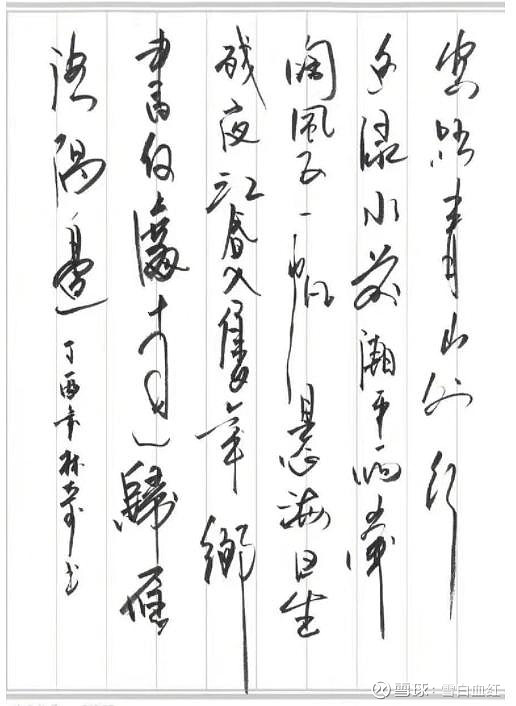 客路青山外行
舟綠水前潮平兩岸
闊風正一帆懸海日生
殘夜江春入舊年鄉
書何處達歸雁
洛陽邊 丁酉年林書
雪球：雪白血红